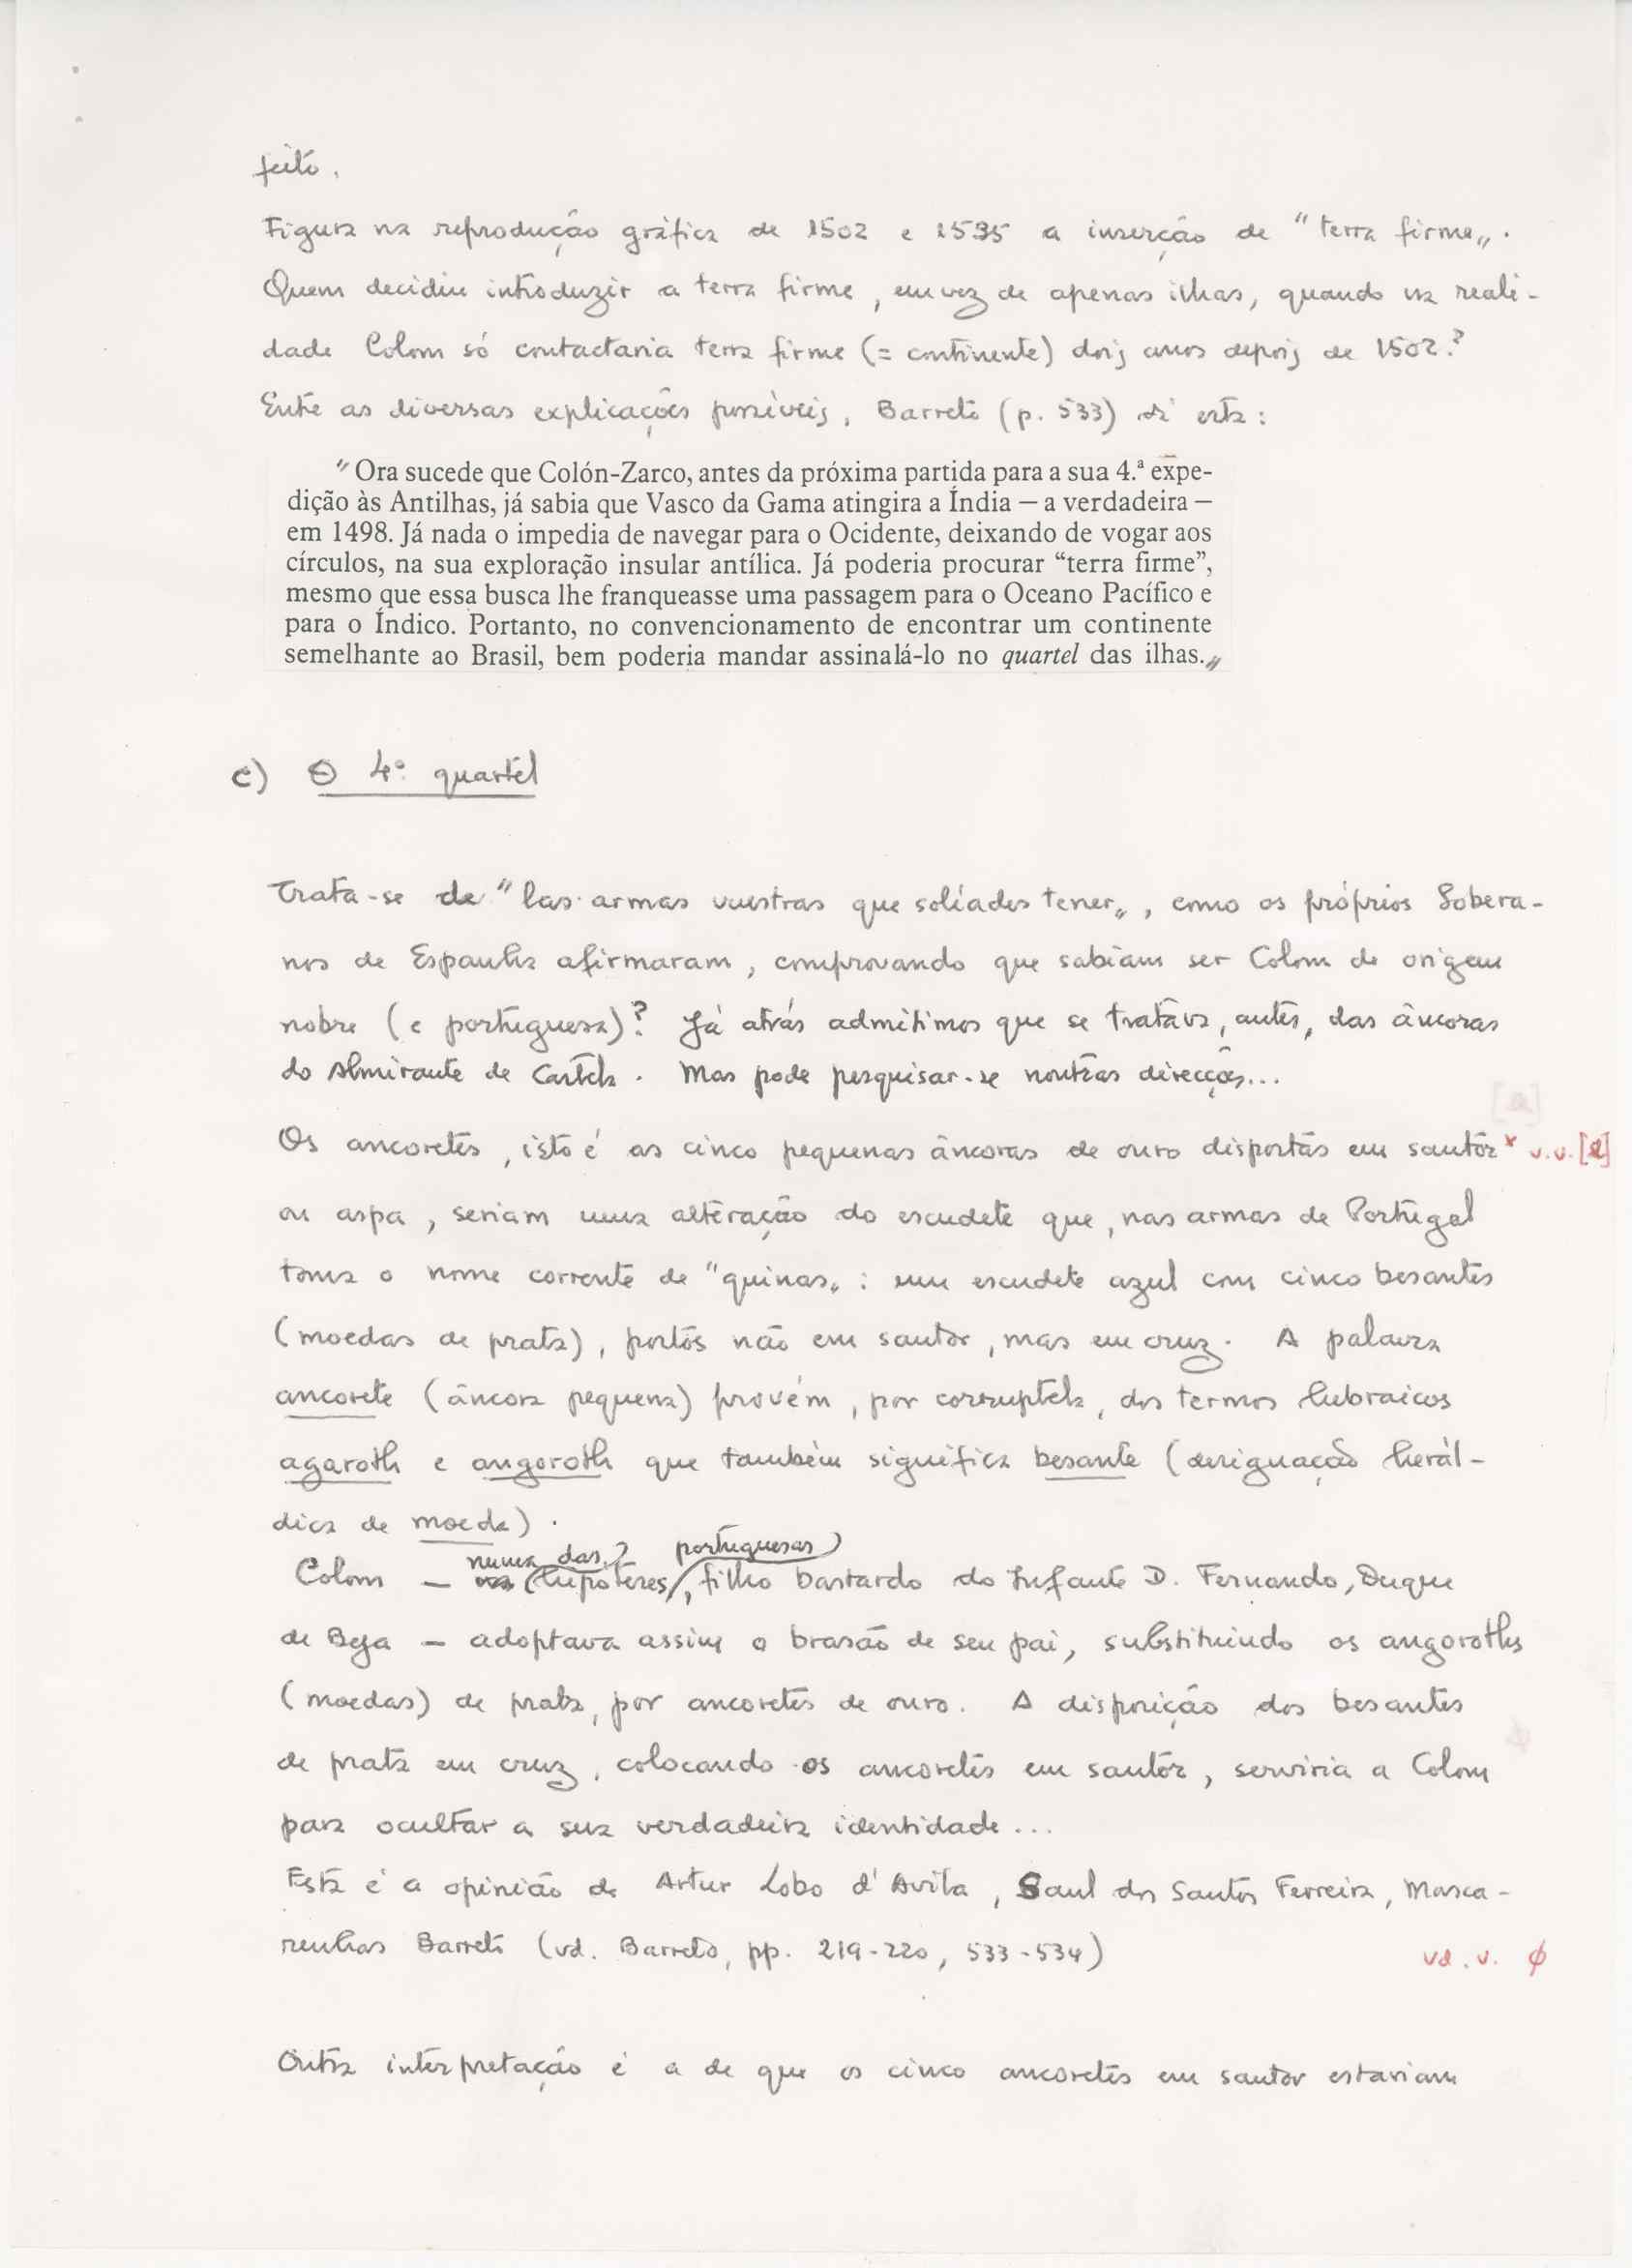 feito.
Figura na reprodução gráfica de 1502 e 1535 a inserção de "terra firme".
Quem decidiu introduzir a terra firme, em vez de apenas ilhas, quando na reali-
dade Colom só contactaria terra firme (= continente) dois anos depois de 1502?
Entre as diversas explicações possíveis, Barreto (p. 533) dá esta:
"Ora sucede que Colón-Zarco, antes da próxima partida para a sua 4.ª expe-
dição às Antilhas, já sabia que Vasco da Gama atingira a Índia — a verdadeira —
em 1498. Já nada o impedia de navegar para o Ocidente, deixando de vogar aos
círculos, na sua exploração insular antílica. Já poderia procurar “terra firme”,
mesmo que essa busca lhe franqueasse uma passagem para o Oceano Pacífico e
para o Índico. Portanto, no convencionamento de encontrar um continente
semelhante ao Brasil, bem poderia mandar assinalá-lo no quartel das ilhas."
c) O 4º quartel
Trata-se de "las armas vuestras que solíades tener", como os próprios Sobera-
nos de Espanha afirmaram, comprovando que sabiam ser Colom de origem
nobre (e portuguesa)? Já atrás admitimos que se tratava, antes, das âncoras
do Almirante de Castela. Mas pode pesquisar-se noutras direcções...
[a]
Os ancoretes, isto é as cinco pequenas âncoras de ouro dispostas em santor x v.v. [a]
ou aspa, seriam uma alteração do escudete que, nas armas de Portugal
toma o nome corrente de "quinas": um escudete azul com cinco besantes
(moedas de prata), postos não em santor, mas em cruz. A palavra
ancorete (âncora pequena) provém, por corruptela, dos termos hebraicos
agaroth e angoroth que também significa besante (designação herál-
dica de moeda).
numa das portuguesas
Colom — (hipóteses), filho bastardo do Infante D. Fernando, Duque
de Beja — adoptava assim o brasão de seu pai, substituindo os angoroths
(moedas) de prata, por ancoretes de ouro. A disposição dos besantes
de prata em cruz, colocando os ancoretes em santor, serviria a Colom
para ocultar a sua verdadeira identidade...
Esta é a opinião de Artur Lobo d'Avila, Saul dos Santos Ferreira, Masca-
renhas Barreto (vd. Barreto, pp. 219-220, 533-534) vd. v. ϕ
Outra interpretação é a de que os cinco ancoretes em santor estariam